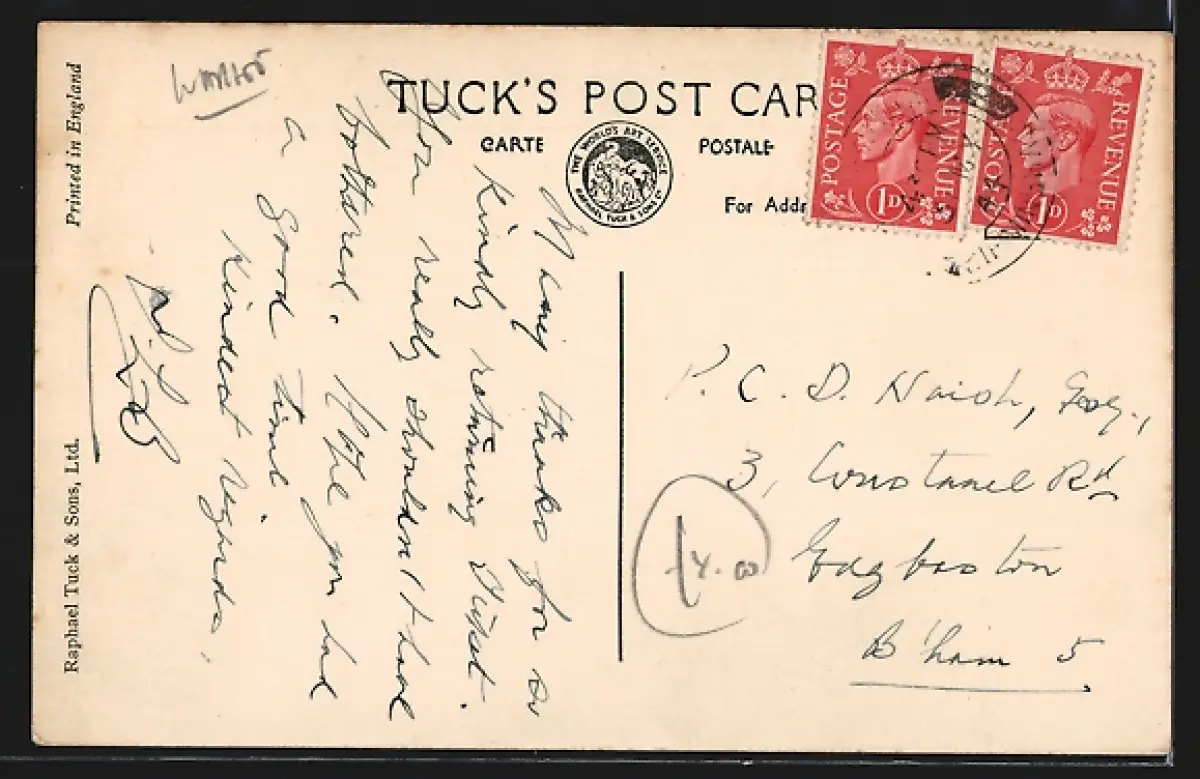 TUCK'S POST CAR
CARTE POSTALE
THE WORLD'S ART SERVICE
RAPHAEL TUCK & SONS LD
For Addr
POSTAGE REVENUE
1D
REVENUE
1D
Printed in England
Raphael Tuck & Sons, Ltd.
Many thanks for so
kindly returning
You really shouldn't have
bothered. Hope you had
a good time
Kindest regards,
P. C. D. Naish, Esq.,
3, Rd
Edgbaston
B'ham 5